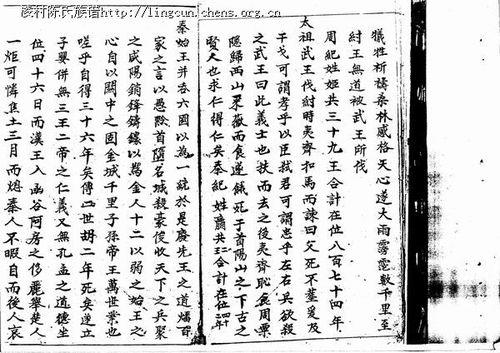 凌村陈氏族谱http://lingcun.chens.org.cn
犧牲祈禱桑林感格天心遂大雨霧霑數千里至
紂王無道被武王所伐
周紀姓姬共三十九王合計在位八百七十四年
太祖武王伐紂時夷齊扣馬而諫曰父死不塟爰及
干戈可謂孝乎以臣弒君可謂忠乎左右兵欲殺
之武王曰此義士也扶而去之後夷齊恥食周粟
隱歸西山采薇而食遂餓死于首陽山之下古之
賢人也求仁得仁矣秦紀姓嬴共三王合計在位
秦始王并吞六國以為一統於是廢先王之道燔百
家之言以愚黔首隳名城殺豪俊收天下之兵聚
之咸陽銷鋒鑄鐻以萬金人十二以弱之始王之
心自以關中之固金城千里子孫帝王萬世業也
嗟乎自得三十六年矣傳二世胡二年死矣遂立
子嬰併無三王二帝之仁義又無孔孟之道德坐
位四十六日而漢王入函谷阿房之侈麗舉楚人
一炬可憐焦土三月而熄秦人不暇自而後人哀